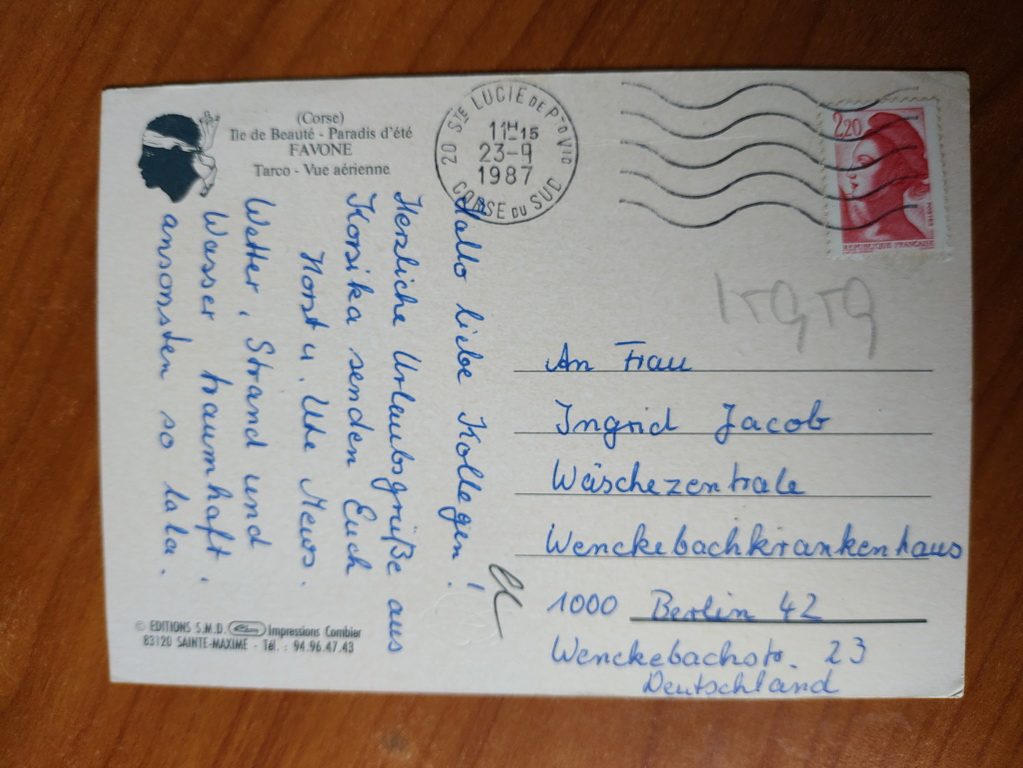 (Corse)
Ile de Beauté - Paradis d'été
FAVONE
Tarco - Vue aérienne
20 STE LUCIE DE PTO VIO
11H15
23-9
1987
CORSE DU SUD
2,20
POSTES
REPUBLIQUE FRANÇAISE
Hallo liebe Kollegen!
Herzliche Urlaubsgrüße aus
Korsika senden Euch
Horst u. Ute Mews.
Wetter, Strand und
Wasser traumhaft.
ansonsten so lala.
An Frau
Ingrid Jacob
Wäschezentrale
Wenckebachkrankenhaus
1000 Berlin 42
Wenckebachstr. 23
Deutschland
© EDITIONS S.M.D. Impressions Combier
83120 SAINTE-MAXIME - Tél. : 94.96.47.43